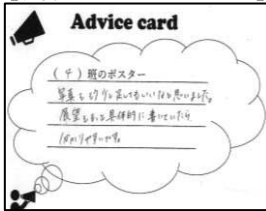 Advice card
(4)班のポスター
写真をもう少し足してもいいなと思いました。
展望をもっと具体的に書いていたら
分かりやすいです。